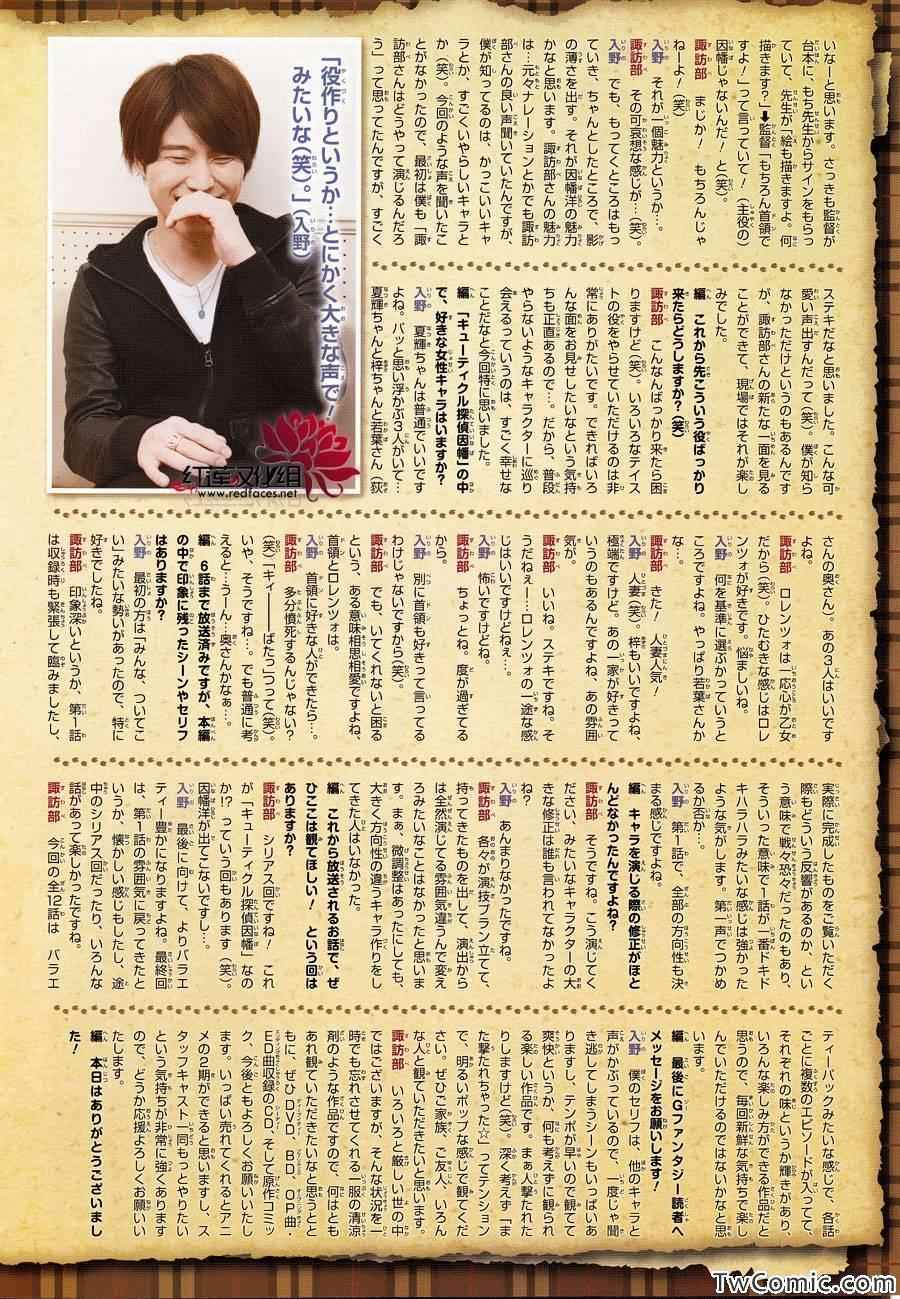 いなーと思います。さっきも監督が
台本に、もち先生からサインをもらっ
ていて、先生が「絵も描きますよ。何
描きます?」➡監督「もちろん首領で
すよ!」って言っていて!(主役の)
因幡じゃないんだ!と(笑)。
諏訪部 まじか! もちろんじゃ
ねーよ!(笑)
入野 それが一個魅力というか…。
諏訪部 その可哀想な感じが…(笑)。
入野 でも、もってくところはもっ
ていき、ちゃんとしたところで、影
の薄さを出す。それが因幡洋の魅力
かなと思います。諏訪部さんの魅力
は…元々ナレーションとかでも諏訪
部さんの良い声聞いていたんですが、
僕が知ってるのは、かっこいいキャ
ラとか、すごくいやらしいキャラと
か(笑)。今回のような声を聞いたこ
とがなかったので、最初は僕も「諏
訪部さんはどうやって演じるんだろ
う」って思ってたんですが、すごく
「役作りというか…とにかく大きな声で!
みたいな(笑)。」(入野)
红莲汉化组
www.redfaces.net
ステキだなと思いました。こんな可
愛い声出すんだって(笑)。僕が知ら
なかっただけというのもあるんです
が、諏訪部さんの新たな一面を見る
ことができて、現場ではそれが楽し
みでした。
編 これから先こういう役ばっかり
来たらどうしますか?(笑)
諏訪部 こんなんばっかり来たら困
りますけど(笑)。いろいろなテイス
トの役をやらせていただけるのは非
常にありがたいです。できればいろ
んな面をお見せしたいなという気持
ちも正直あるので…。だから、普段
やらないようなキャラクターに巡り
会えるっていうのは、すごく幸せな
ことだなと今回特に思いました。
編 「キューティクル探偵因幡」の中
で、好きな女性キャラはいますか?
入野 夏輝ちゃんは普通でいいです
よね。パッと思い浮かぶ3人がいて…
夏輝ちゃんと梓ちゃんと若葉さん(荻
さんの奥さん)。あの3人はいいです
よね。
諏訪部 ロレンツォは一応心が乙女
だから(笑)。ひたむきな感じはロレ
ンツォが好きです。悩ましいね。
入野 何を基準に選ぶかっていうと
ころですよね。やっぱり若葉さんか
な…。
諏訪部 きた! 人妻人気!
入野 人妻(笑)。梓もいいですよね、
極端ですけど。あの一家が好きって
いうのもあるんですよね、あの雰囲
気が。
諏訪部 いいね。ステキですね。そ
うだねぇー…ロレンツォの一途な感
じはいいですけどねぇ…。
入野 怖いですけどね。
諏訪部 ちょっとね。度が過ぎてる
から。
入野 別に首領も好きって言ってる
わけじゃないですから(笑)。
諏訪部 でも、いてくれないと困る
という、ある意味相思相愛ですよね、
首領とロレンツォは。
入野 首領に好きな人ができたら…。
諏訪部 多分憤死するんじゃない?
(笑)「キィ――ばたっ」つって(笑)。
いや、そうですね…。でも普通に考
えると…うーん…奥さんかなぁ…。
編 6話まで放送済みですが、本編
の中で印象に残ったシーンやセリフ
はありますか?
入野 最初の方は「みんな、ついてこ
い」みたいな勢いがあったので、特に
好きでしたね。
諏訪部 印象深いというか、第1話
は収録時も緊張して臨みましたし、
実際に完成したものをご覧いただく
際もどういう反響があるのか、とい
う意味で戦々恐々だったのもあり、
そういった意味で1話が一番ドキド
キハラハラみたいな感じは強かった
ような気がします。第一声でつかめ
るか否か…。
入野 第1話で、全部の方向性も決
まる感じですよね。
編 キャラを演じる際の修正がほと
んどなかったんですよね?
諏訪部 そうですね。こう演じてく
ださい、みたいなキャラクターの大
きな修正は誰も言われてなかったよ
ね?
入野 あんまりなかったですね。
諏訪部 各々が演技プラン立てて、
持ってきたものを出して、演出から
は全然演じてる雰囲気違うんで変え
ろみたいなことはなかったと思いま
す。まぁ、微調整はあったにしても、
大きく方向性の違うキャラ作りをし
てきた人はいなかった。
編 これから放送されるお話で、ぜ
ひここは観てほしい! という回は
ありますか?
諏訪部 シリアス回ですね! これ
が「キューティクル探偵因幡」なの
か!?っていう回もあります(笑)。
因幡洋が出てこないですし…。
入野 最後に向けて、よりバラエ
ティー豊かになりますよね。最終回
は、第1話の雰囲気に戻ってきたと
いうか、懐かしい感じもしたし、途
中のシリアス回だったり、いろんな
話があって楽しかったですね。
諏訪部 今回の全12話は、バラエ
ティーパックみたいな感じで、各話
ごとに複数のエピソードが入ってて、
それぞれの味というか輝きがあり、
いろんな楽しみ方ができる作品だと
思うので、毎回新鮮な気持ちで楽し
んでいただけるのではないかなと思
います。
編 最後にGファンタジー読者へ
メッセージをお願いします!
入野 僕のセリフは、他のキャラと
声がかぶっているので、一度じゃ聞
き逃してしまうシーンもいっぱいあ
りますし、テンポが早いので観てて
爽快というか、何も考えずに観られ
る楽しい作品です。まぁ人撃たれた
りしますけど(笑)。深く考えず「ま
た撃れちゃった☆」ってテンション
で、明るいポップな感じで観てくだ
さい。ぜひご家族、ご友人、いろん
な人と観ていただきたいと思います。
諏訪部 いろいろと厳しい世の中
ではございますが、そんな状況を一
時でも忘れさせてくれる一服の清涼
剤のような作品ですので、何はとも
あれ観ていただきたいなと思うとと
もに、ぜひDVD、BD、OP曲・
ED曲収録のCD、そして原作コミッ
ク、今後ともよろしくお願いいたし
ます。いっぱい売れてくれるとアニ
メの2期ができると思いますし、ス
タッフキャスト一同もっとやりたい
という気持ちが非常に強くあります
ので、どうか応援よろしくお願いい
たします。
編 本日はありがとうございまし
た!
www.TwComic.com